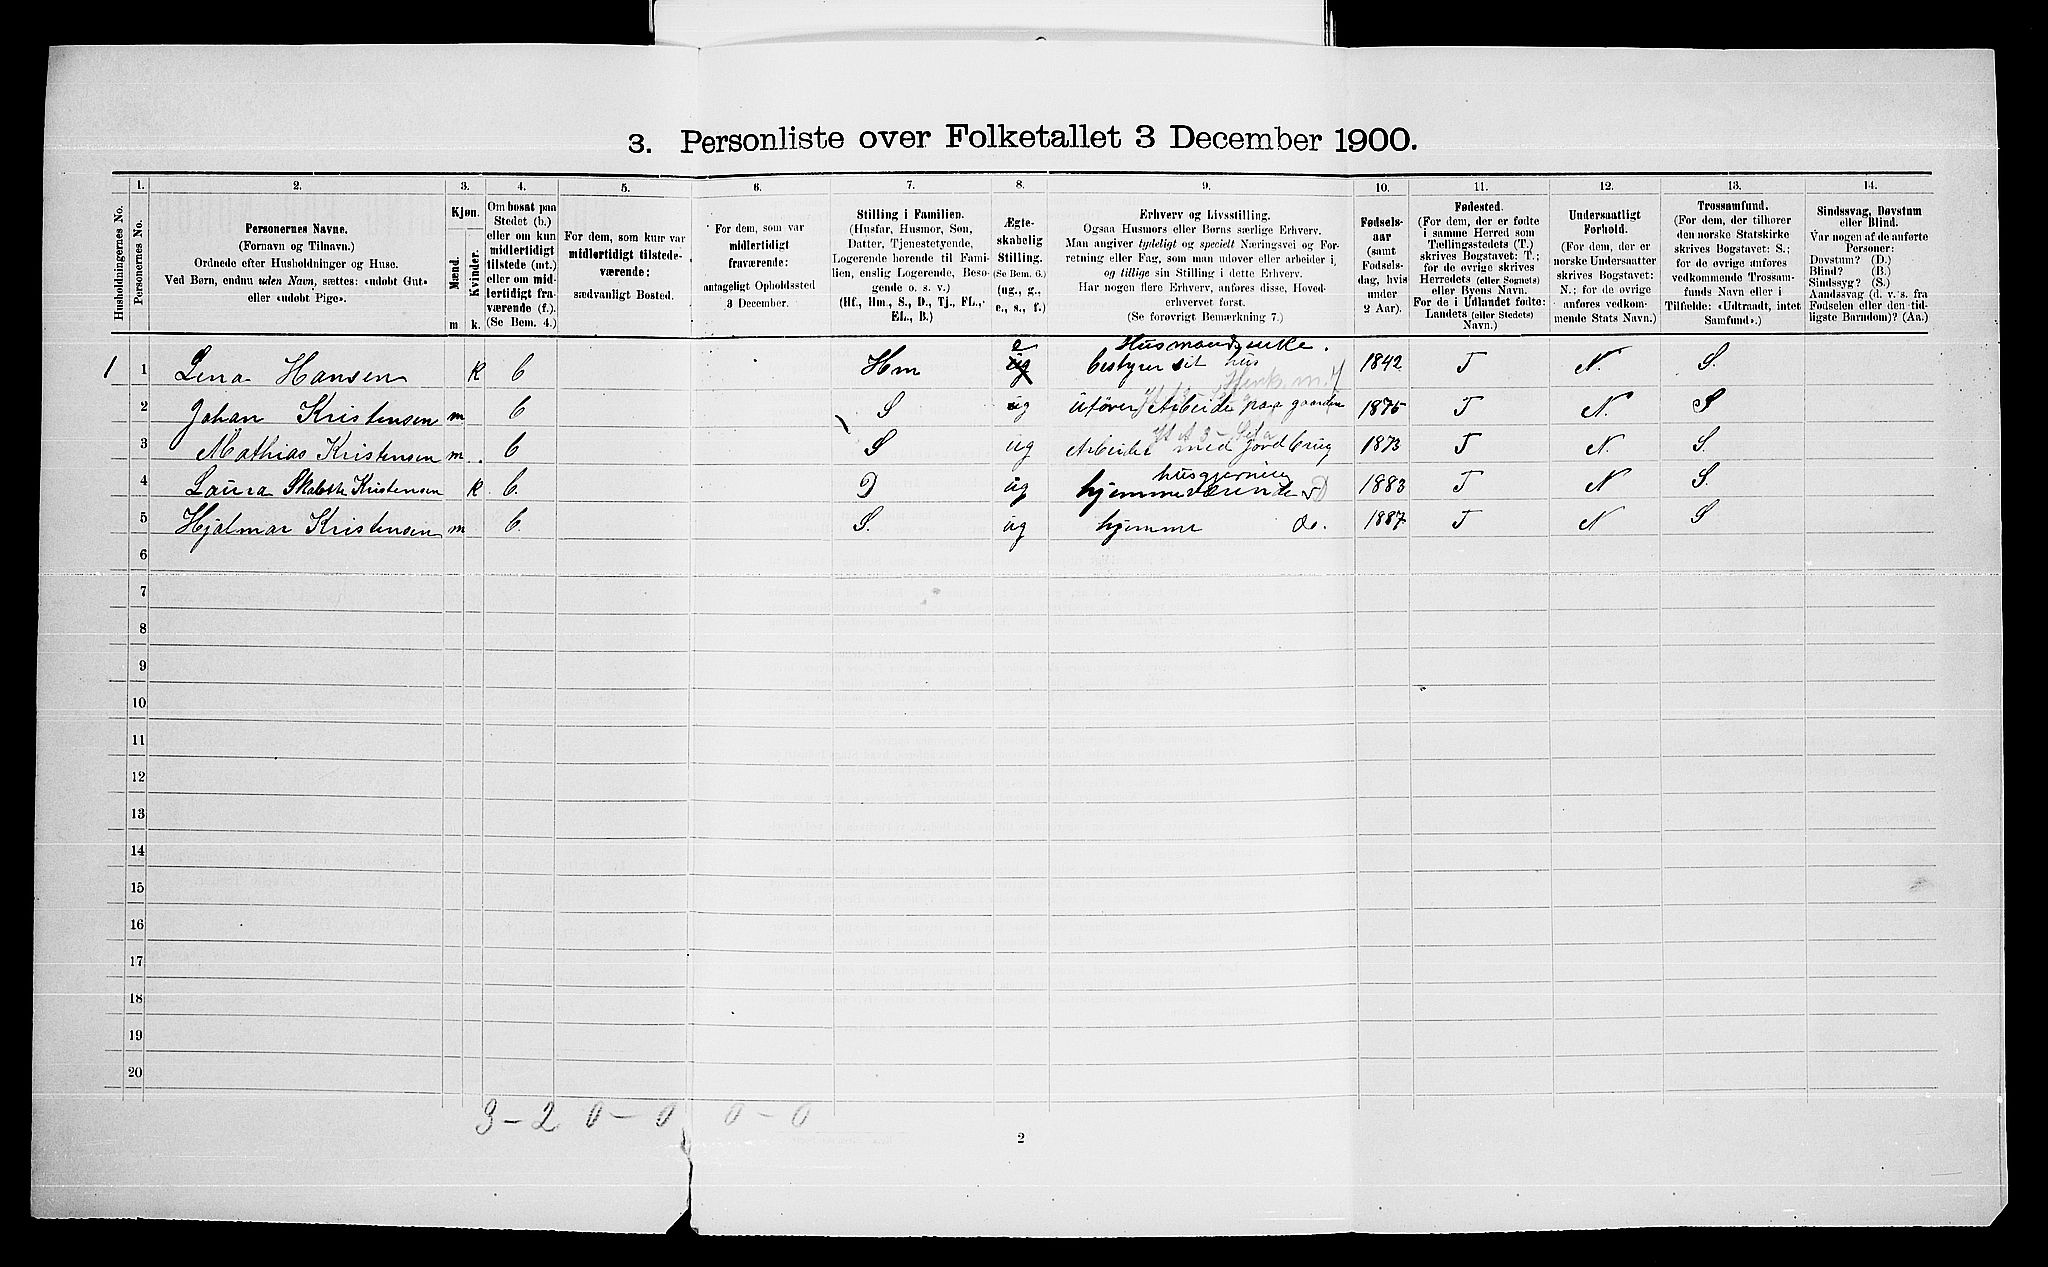 3. Personliste over Folketallet 3 December 1900.
1. 2. 3. 4. 5. 6. 7. 8. 9. 10. 11. 12. 13. 14.
Husholdningernes No.
Personernes No.
Personernes Navne.
(Fornavn og Tilnavn.)
Ordnede efter Husholdninger og Huse.
Ved Børn, endnu uden Navn, sættes: «udøbt Gut»
eller «udøbt Pige».
Kjøn.
Mænd.
Kvinder.
m k.
Om bosat paa
Stedet (b.)
eller om kun
midlertidigt
tilstede (mt.)
eller om mid-
lertidigt fra-
værende (f.).
(Se Bem. 4.)
For dem, som kun var
midlertidigt tilstede-
værende:
sædvanligt Bosted.
For dem, som var
midlertidigt
fraværende:
antageligt Opholdssted
3 December.
Stilling i Familien.
(Husfar, Husmor, Søn,
Datter, Tjenestetyende,
Logerende hørende til Fami-
lien, enslig Logerende, Besø-
gende o. s. v.)
(Hf., Hm., S., D., Tj., FL.,
EL., B.)
Ægte-
skabelig
Stilling.
(Se Bem. 6.)
(ug., g.,
e., s., f.)
Erhverv og Livsstilling.
Ogsaa Husmors eller Børns særlige Erhverv.
Man angiver tydeligt og specielt Næringsvei og For-
retning eller Fag, som man udøver eller arbeider i,
og tillige sin Stilling i dette Erhverv.
Har nogen flere Erhverv, anføres disse, Hoved-
erhvervet først.
(Se forøvrigt Bemærkning 7.)
Fødsels-
aar
(samt
Fødsels-
dag, hvis
under
2 Aar).
Fødested.
(For dem, der er fødte
i samme Herred som
Tællingsstedets (T.)
skrives Bogstavet: T.;
for de øvrige skrives
Herredets (eller Sognets)
eller Byens Navn.
For de i Udlandet fødte:
Landets (eller Stedets)
Navn.)
Undersaatligt
Forhold.
(For dem, der er
norske Undersaatter
skrives Bogstavet:
N.; for de øvrige
anføres vedkom-
mende Stats Navn.)
Trossamfund.
(For dem, der tilhører
den norske Statskirke
skrives Bogstavet: S.;
for de øvrige anføres
vedkommende Trossam-
funds Navn eller i
Tilfælde: «Udtraadt, intet
Samfund».)
Sindssvag, Døvstum
eller Blind.
Var nogen af de anførte
Personer:
Døvstum? (D.)
Blind? (B.)
Sindssyg? (S.)
Aandssvag (d. v. s. fra
Fødselen eller den tid-
ligste Barndom)? (Aa.)
e Husmandsenke.
1 1 Lena Hansen k b Hm ug bestyrer sit hus 1842 T N. S.
2 Johan Kristensen m b S ug utøver Arbeide paa gaarden 1875 T N. S
3 Mathias Kristensen m b S ug Arbeider med Jordbrug 1873 T N. S.
husgjerning
4 Laura Kristensen k b. D ug hjemmeværende 1883 T N S.
5 Hjalmar Kristensen m b. S. ug hjemme do. 1887 T N S
6
7
8
9
10
11
12
13
14
15
16
17
18
19
20
3 - 2 0 - 0 0 - 0
2